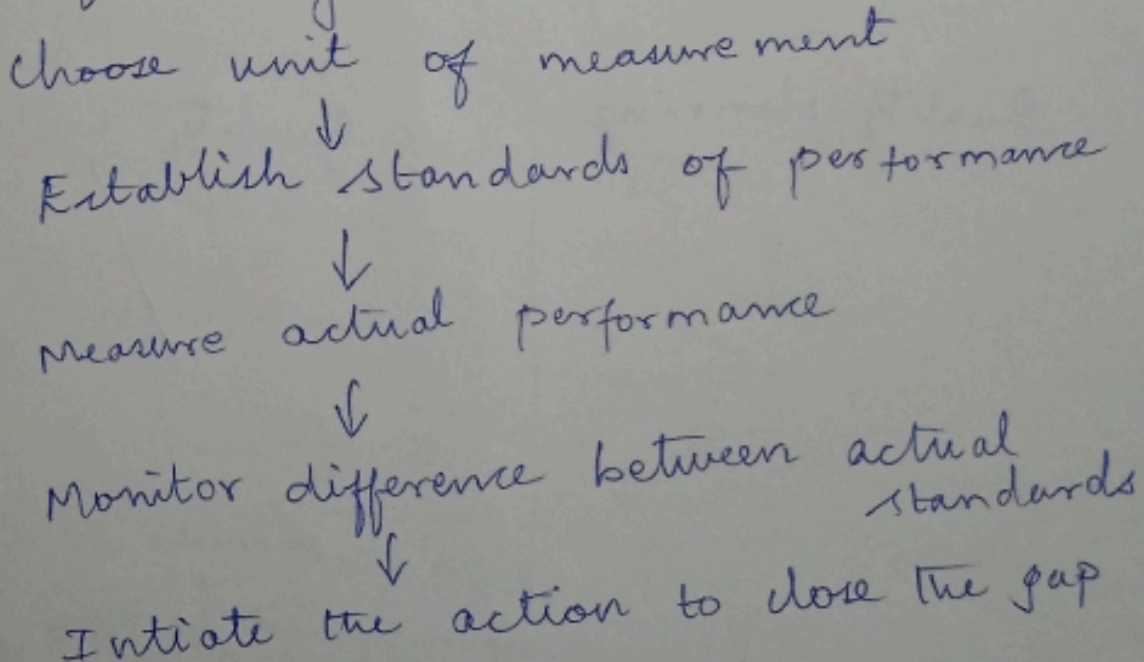 Choose unit of measurement
↓
Establish standards of performance
↓
Measure actual performance
↓
Monitor difference between actual
standards
↓
Intiate the action to close the gap